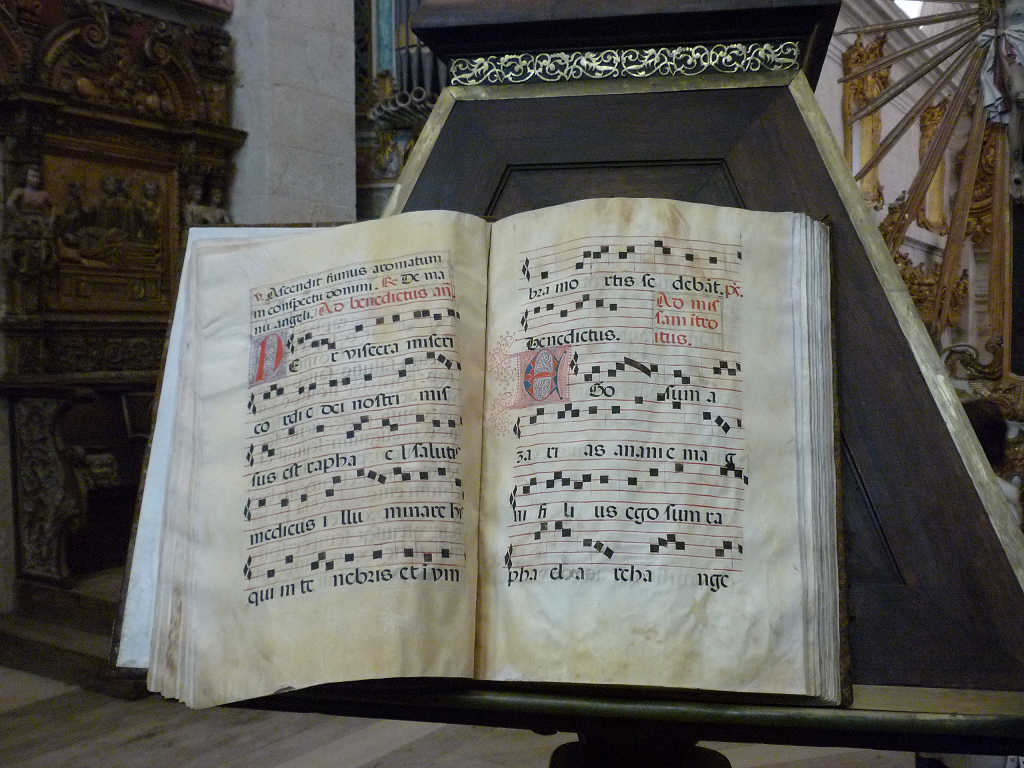 ℣. Ascendit fumus aromatum
in conspectu domini. ℟. De ma
nu angeli. Ad benedictus an.
Pe r viscera miseri
co rdi e dei nostri mis
sus est rapha e l salutis
medicus i llu minare his
qui in te nebris et i vm
bra mo rtis se debāt. p̄x.
Benedictus. Ad mis
sam itro
itus.
EGo sum a
za ri as ananie ma g
ni fi li us ego sum ra
pha el a rcha nge